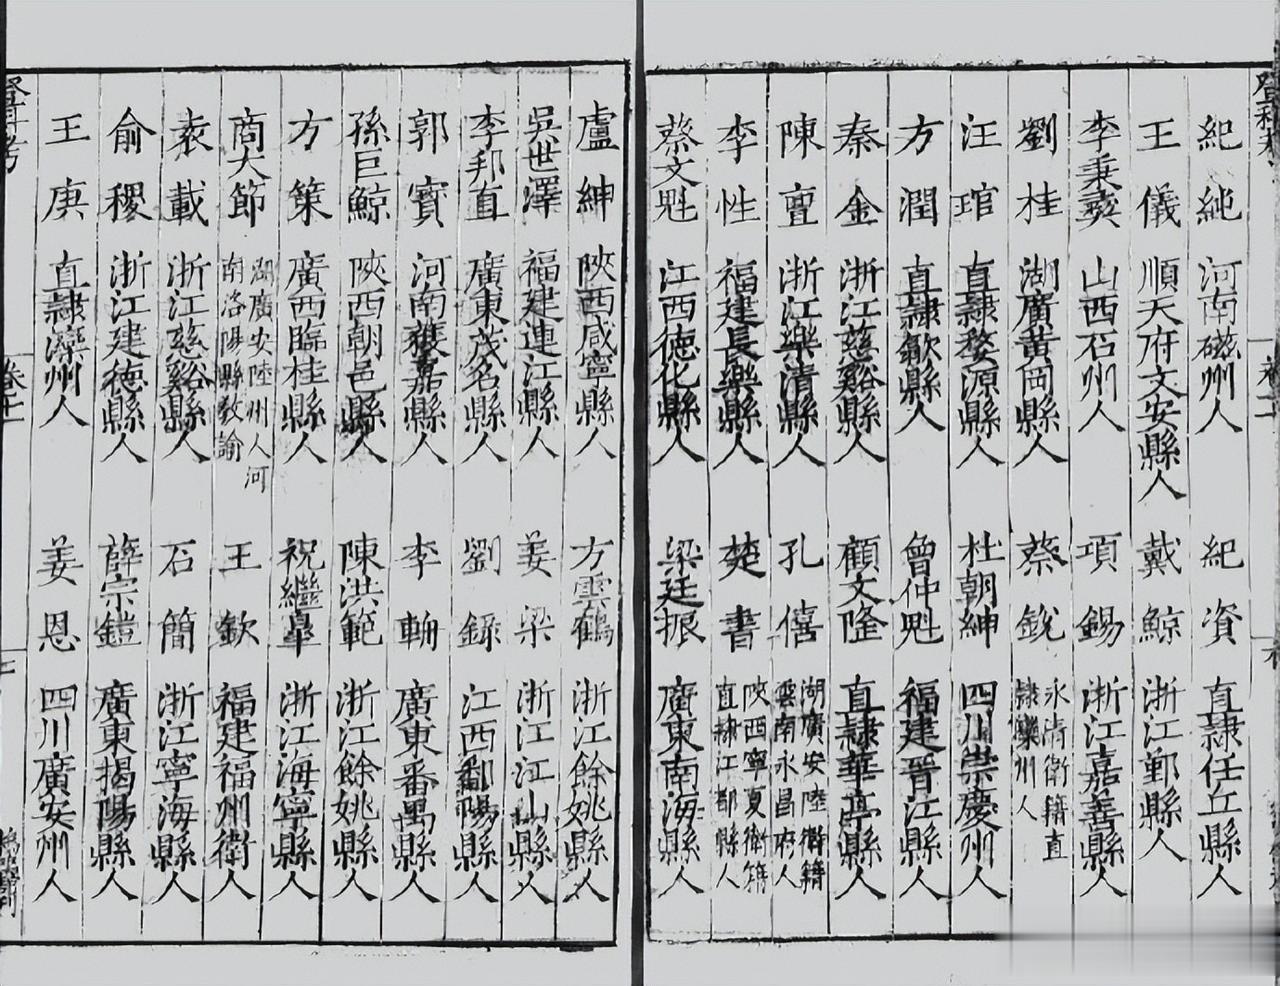 紀純 河南磁州人 紀資 直隷任丘縣人
王儀 順天府文安縣人 戴鯨 浙江鄞縣人
李秉彛 山西石州人 項錫 浙江嘉善縣人
劉桂 湖廣黄岡縣人 蔡銳 永清衛籍直隷灤州人
汪琯 直隷婺源縣人 杜朝紳 四川崇慶州人
方潤 直隷歙縣人 曾仲魁 福建晉江縣人
秦金 浙江慈谿縣人 顧文隆 直隷華亭縣人
陳亶 浙江樂清縣人 孔僖 湖廣安陸衛籍雲南永昌府人
李性 福建長樂縣人 楚書 陝西寧夏衛籍直隷江都縣人
蔡文魁 江西德化縣人 梁廷振 廣東南海縣人
盧紳 陝西咸寧縣人 方雲鶴 浙江餘姚縣人
吳世澤 福建連江縣人 姜梁 浙江江山縣人
李邦直 廣東茂名縣人 劉錄 江西鄱陽縣人
郭寶 河南獲嘉縣人 李翀 廣東番禺縣人
孫巨鯨 陝西朝邑縣人 陳洪範 浙江餘姚縣人
方策 廣西臨桂縣人 祝繼臯 浙江海寧縣人
商大節 湖廣安陸州人河南洛陽縣教諭 王欽 福建福州衛人
袁載 浙江慈谿縣人 石簡 浙江寧海縣人
俞稷 浙江建德縣人 薛宗鎧 廣東揭陽縣人
王庚 直隷灤州人 姜恩 四川廣安州人